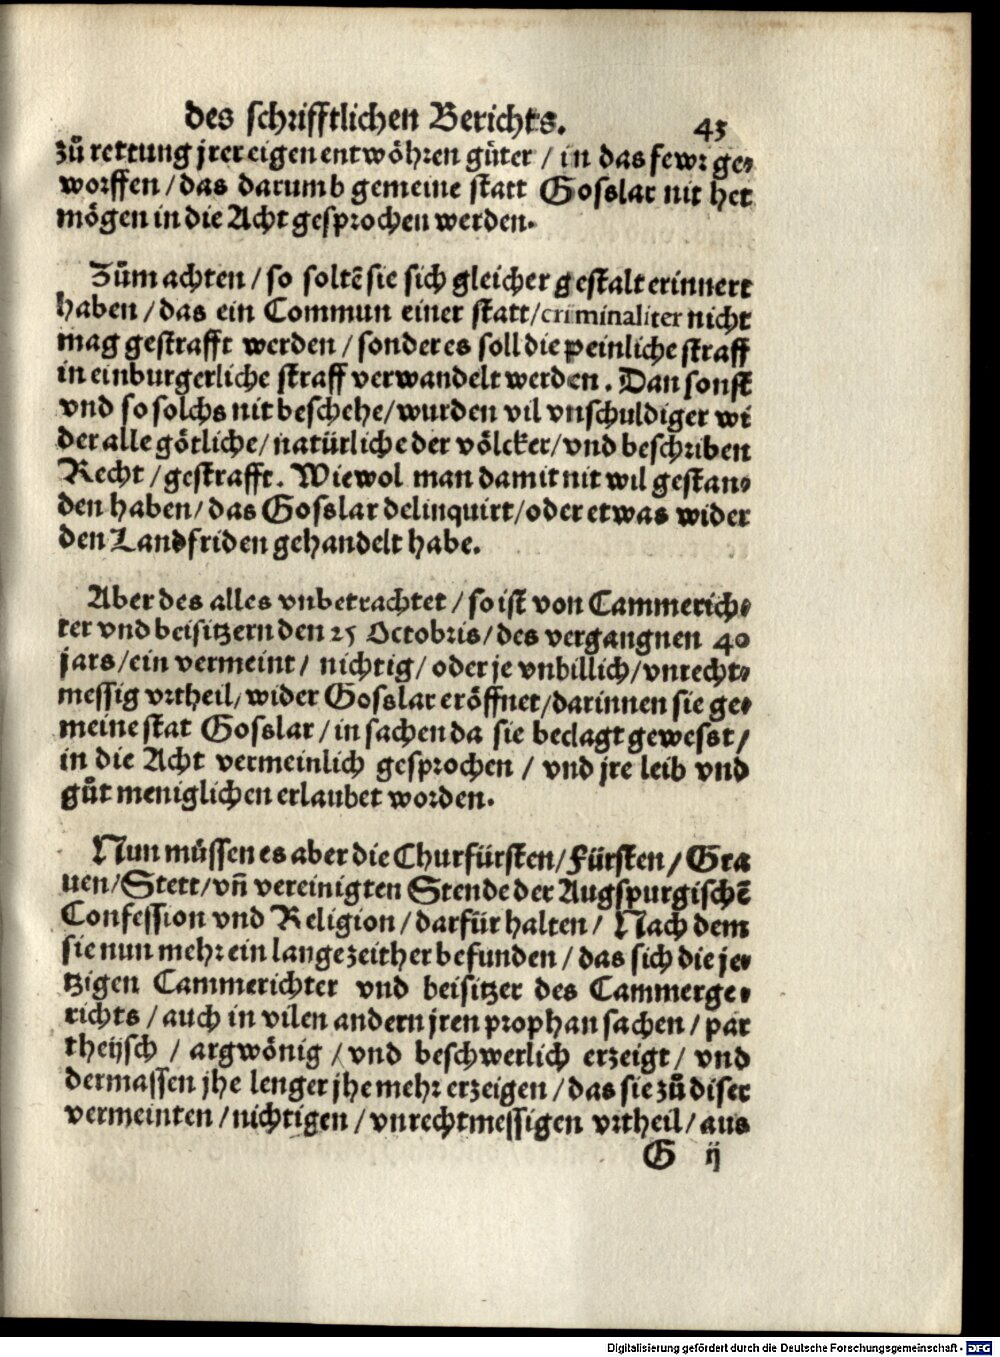 des schrifftlichen Berichts. 43
zů rettung jrer eigen entwöhren güter / in das fewr ge⸗
worffen / das darumb gemeine statt Gosslar nit het
mögen in die Acht gesprochen werden.
Zům achten / so soltē sie sich gleicher gestalt erinnert
haben / das ein Commun einer statt / criminaliter nicht
mag gestrafft werden / sonder es soll die peinliche straff
in ein burgerliche straff verwandelt werden . Dan sonst
vnd so solchs nit beschehe / wurden vil vnschuldiger wi
der alle götliche / natürliche der völcker / vnd beschriben
Recht / gestrafft . Wiewol man damit nit wil gestan⸗
den haben / das Gosslar delinquirt / oder etwas wider
den Landfriden gehandelt habe.
Aber des alles vnbetrachtet / so ist von Cammerich⸗
ter vnd beisitzern den 25 Octobris / des vergangnen 40
jars / ein vermeint / nichtig / oder je vnbillich / vnrecht⸗
messig vrtheil / wider Gosslar eröffnet / darinnen sie ge⸗
meine stat Gosslar / in sachen da sie beclagt gewesst /
in die Acht vermeinlich gesprochen / vnd jre leib vnd
gůt meniglichen erlaubet worden.
Nun müssen es aber die Churfürsten / Fürsten / Gra
uen / Stett / vn̄ vereinigten Stende der Augspurgischē
Confession vnd Religion / darfür halten / Nach dem
sie nun mehr ein lange zeit her befunden / das sich die je⸗
tzigen Cammerichter vnd beisitzer des Cammerge⸗
richts / auch in vilen andern jren prophan sachen / par
theijsch / argwönig / vnd beschwerlich erzeigt / vnd
dermassen jhe lenger jhe mehr erzeigen / das sie zů diser
vermeinten / nichtigen / vnrechtmessigen vrtheil / aus
G ij
Digitalisierung gefördert durch die Deutsche Forschungsgemeinschaft - DFG